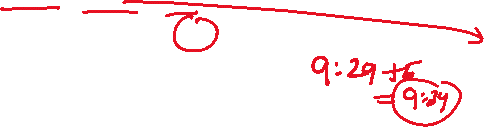 9:29+5
=9:34